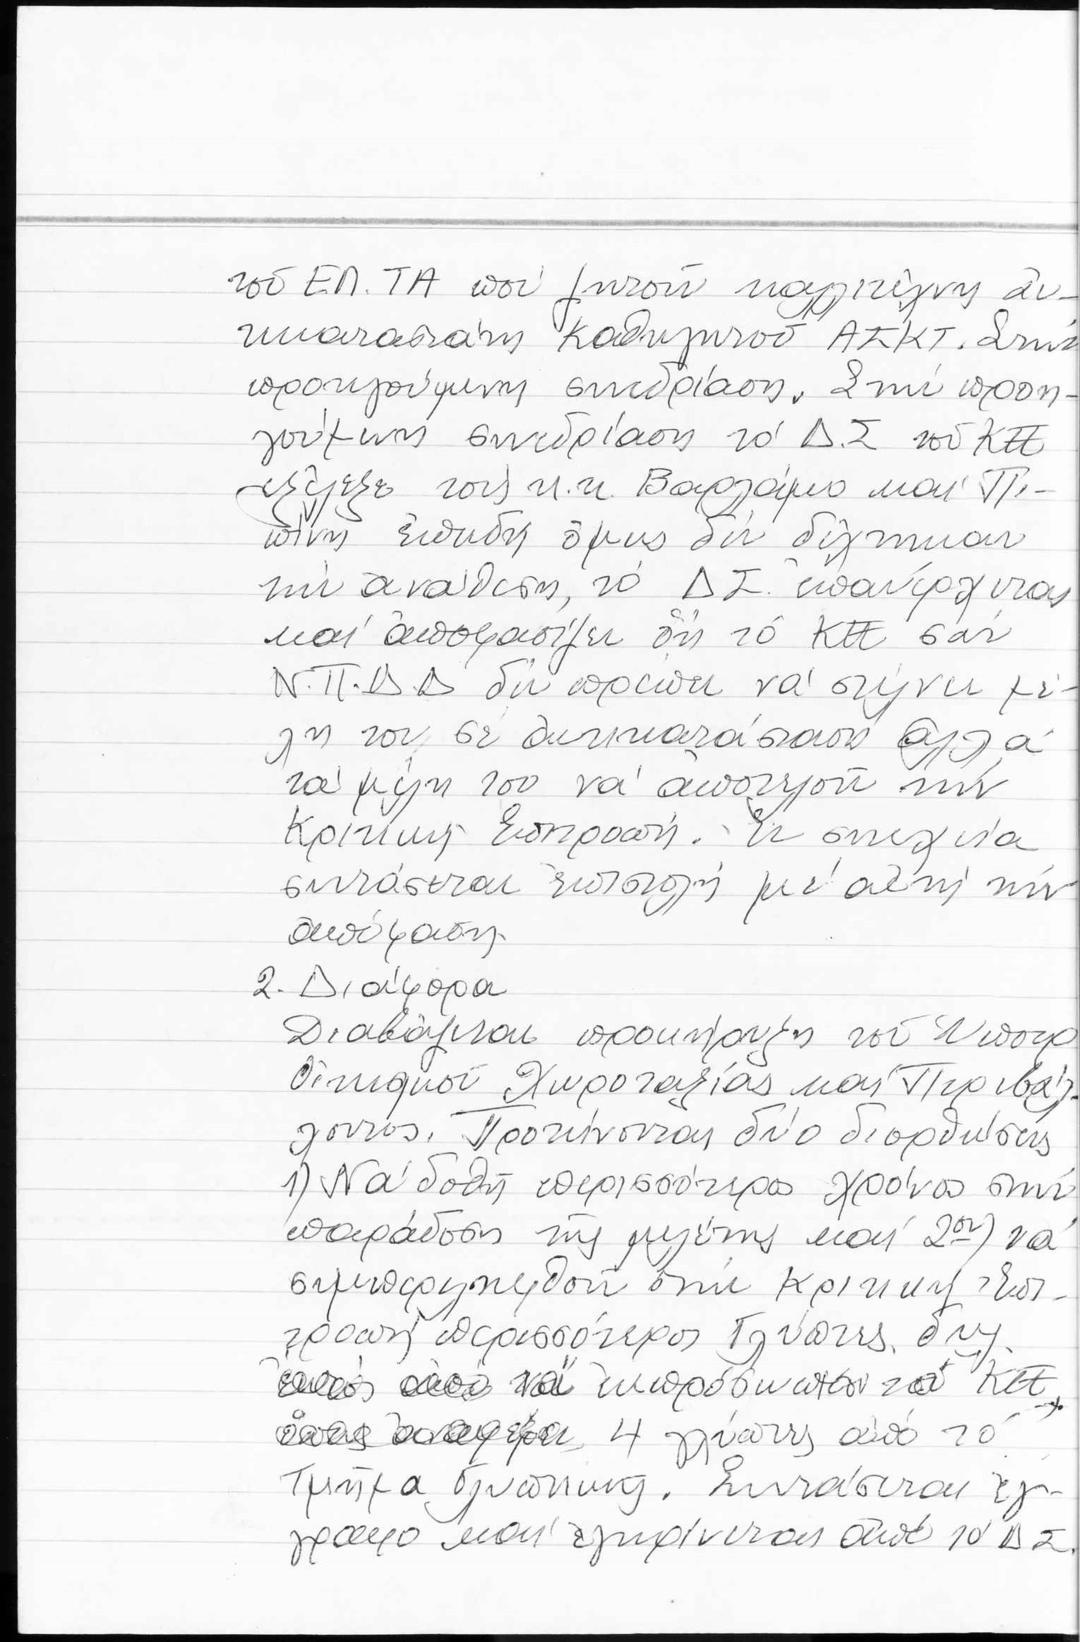 τοῦ ΕΠ.ΤΑ ποὺ ζητοῦν καλλιτέχνη ἀν-
τικαταστάτη Καθηγητοῦ ΑΣΚΤ. Στὴν
προηγούμενη συνεδρίαση. Στὴν προη-
γούμενη συνεδρίαση τὸ Δ.Σ τοῦ ΚΕΕ
ἐξέλεξε τοὺς κ.κ. Βαρλάμο καὶ Πι-
πίνη ἐπειδὴ ὅμως δὲν δέχτηκαν
τὴν ἀνάθεση, τὸ ΔΣ. ἐπανέρχεται
καὶ ἀποφασίζει ὅτι τὸ ΚΕΕ σὰν
Ν.Π.Δ.Δ δὲν πρέπει νὰ στέλνει μέ-
λη του σὲ ἀντικατάσταση ἀλλὰ
τὰ μέλη του νὰ ἀποτελοῦν τὴν
Κριτικὴ Ἐπιτροπή. Ἐν συνεχεία
συντάσεται ἐπιστολὴ μὲ αὐτὴ τὴν
ἀπόφαση.
2. Διάφορα
Διαβάζεται προκήρυξη τοῦ Ὑπουρ
Οἰκισμοῦ Χωροταξίας καὶ Περιβάλ-
λοντος. Προτείνονται δύο διορθώσεις
1) Νὰ δοθῆ περισσότερος χρόνος στὴν
παράδοση τῆς μελέτης καὶ 2ον) νὰ
συμπεριληφθοῦν στὴν Κριτικὴ Ἐπι-
τροπὴ περισσότεροι Γλύπτες, δηλ.
ἐκτὸς ἀπὸ ἐκπρόσωπον τοῦ ΚΕΕ,
ὅπως ἀναφέρει 4 γλύπτες ἀπὸ τὸ
Τμῆμα Γλυπτικῆς. Συντάσεται ἔγ-
γραφο καὶ ἐγκρίνεται ἀπὸ τὸ ΔΣ.